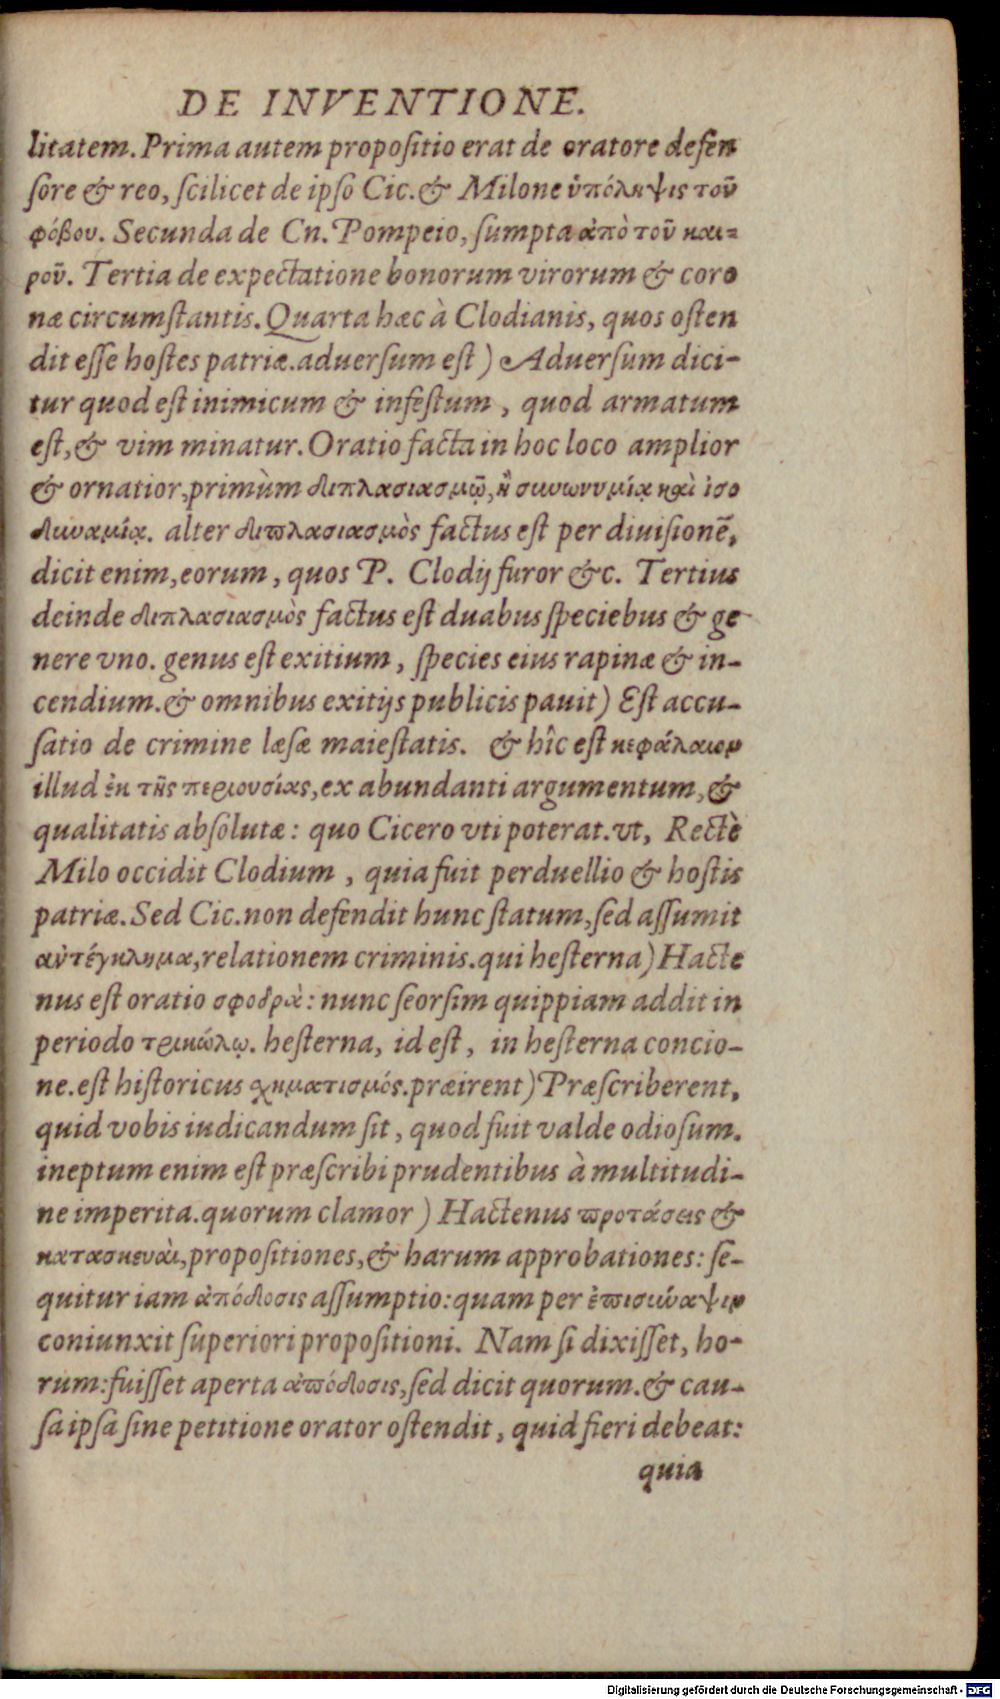 DE INVENTIONE.
litatem. Prima autem propositio erat de oratore defen
sore & reo, scilicet de ipso Cic. & Milone ὑπόληψις τοῦ
φόβου. Secunda de Cn. Pompeio, sumpta ἀπὸ τοῦ και=
ροῦ. Tertia de expectatione bonorum virorum & coro
næ circumstantis. Quarta hæc à Clodianis, quos osten
dit esse hostes patriæ. aduersum est) Aduersum dici-
tur quod est inimicum & infestum, quod armatum
est, & vim minatur. Oratio facta in hoc loco amplior
& ornatior, primùm διπλασιασμῷ, ἢ συνωνυμίᾳ καὶ ἰσο
δυναμίᾳ. alter διπλασιασμὸς factus est per diuisionē,
dicit enim, eorum, quos P. Clodij furor &c. Tertius
deinde διπλασιασμὸς factus est duabus speciebus & ge
nere vno. genus est exitium, species eius rapinæ & in-
cendium. & omnibus exitijs publicis pauit) Est accu-
satio de crimine læsæ maiestatis. & hîc est κεφάλαιον
illud ἐκ τῆς περιουσίας, ex abundanti argumentum, &
qualitatis absolutæ: quo Cicero vti poterat. vt, Rectè
Milo occidit Clodium, quia fuit perduellio & hostis
patriæ. Sed Cic. non defendit hunc statum, sed assumit
αὐτέγκλημα, relationem criminis. qui hesterna) Hacte
nus est oratio σφοδρὰ: nunc seorsim quippiam addit in
periodo τρικώλῳ. hesterna, id est, in hesterna concio-
ne. est historicus χηματισμός. præirent) Præscriberent,
quid vobis iudicandum sit, quod fuit valde odiosum.
ineptum enim est præscribi prudentibus à multitudi-
ne imperita. quorum clamor) Hactenus προτάσεις &
κατασκευαὶ, propositiones, & harum approbationes: se-
quitur iam ἀπόδοσις assumptio: quam per ἐπισύναψιν
coniunxit superiori propositioni. Nam si dixisset, ho-
rum: fuisset aperta ἀπόδοσις, sed dicit quorum. & cau-
sa ipsa sine petitione orator ostendit, quid fieri debeat:
quia
Digitalisierung gefördert durch die Deutsche Forschungsgemeinschaft - DFG